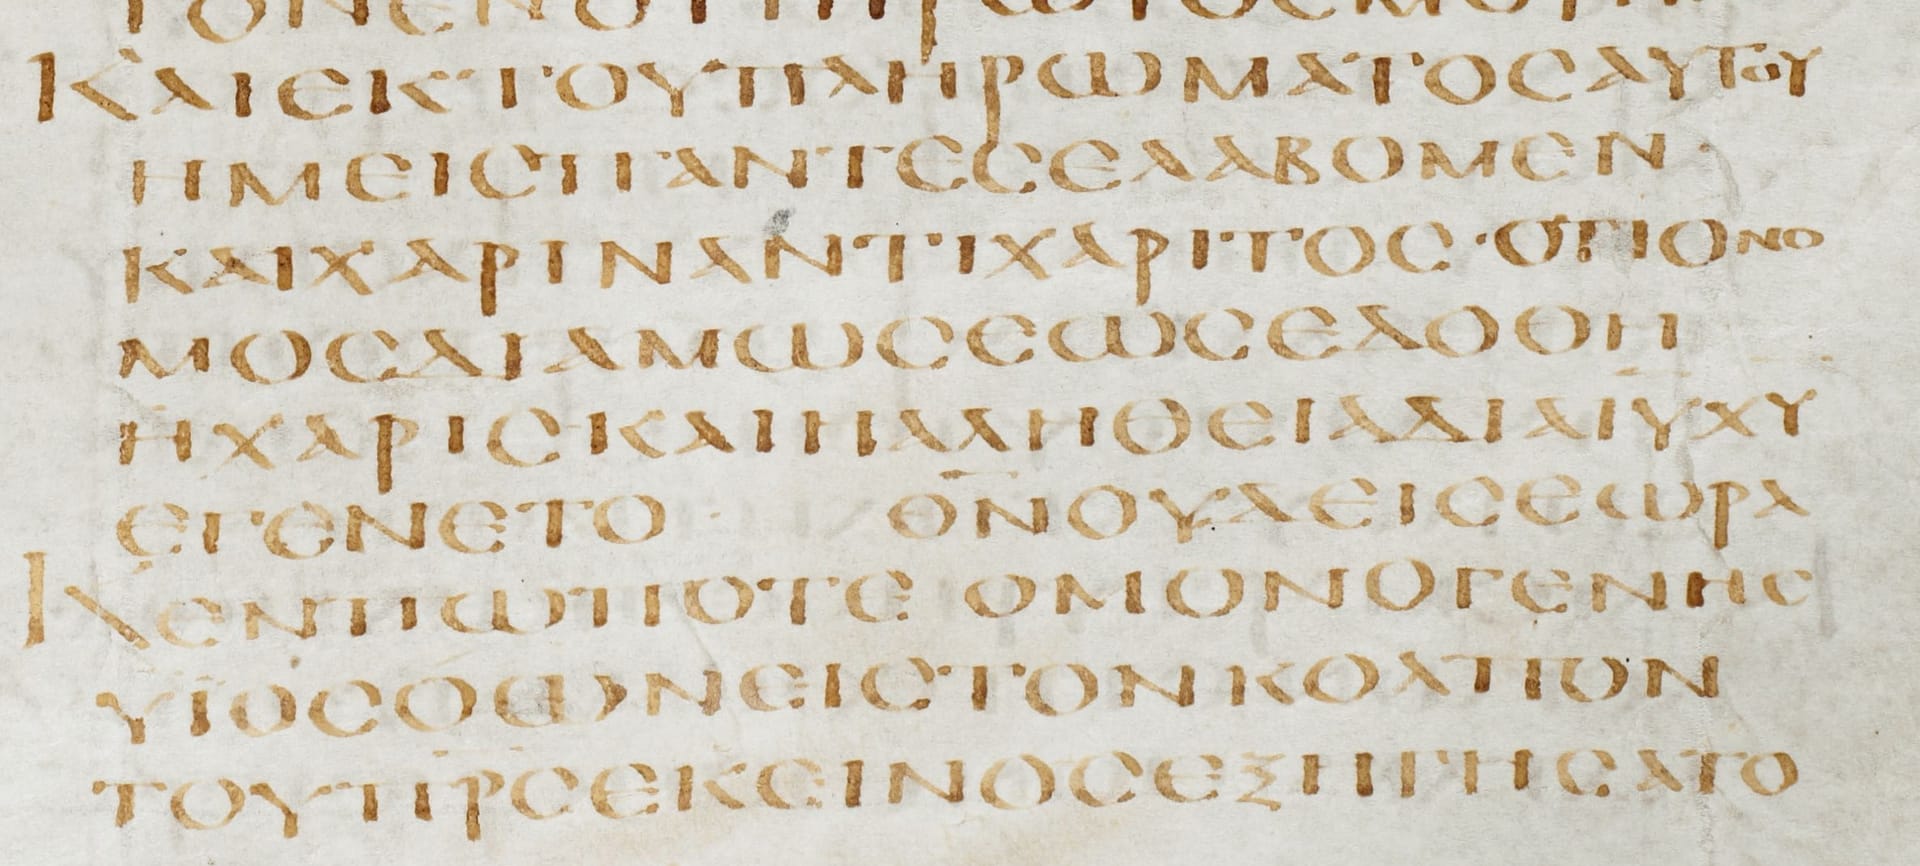 ΤΟΝΕΝΟΤΙΠΡΩΤΟΣΜΟΥΗΝ
ΚΑΙΕΚΤΟΥΠΛΗΡΩΜΑΤΟΣΑΥΤΟΥ
ΗΜΕΙΣΠΑΝΤΕΣΕΛΑΒΟΜΕΝ
ΚΑΙΧΑΡΙΝΑΝΤΙΧΑΡΙΤΟΣ·ΟΤΙΟΝΟ
ΜΟΣΔΙΑΜΩΣΕΩΣΕΔΟΘΗ
ΗΧΑΡΙΣΚΑΙΗΑΛΗΘΕΙΑΔΙΑΙΥΧΥ
ΕΓΕΝΕΤΟ ΘΝΟΥΔΕΙΣΕΩΡΑ
ΚΕΝΠΩΠΟΤΕ ΟΜΟΝΟΓΕΝΗΣ
ΥΙΟΣΟΩΝΕΙΣΤΟΝΚΟΛΠΟΝ
ΤΟΥΠΡΣΕΚΕΙΝΟΣΕΞΗΓΗΣΑΤΟ